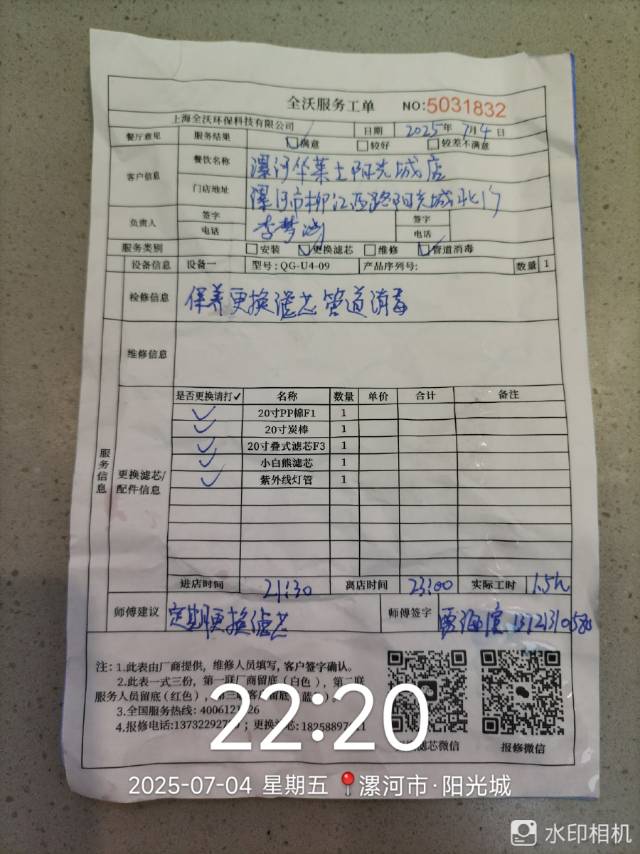 全沃服务工单 NO:5031832
上海全沃环保科技有限公司 日期 2025年 7月4日
餐厅意见 服务结果 满意 较好 较差不满意
客户信息 餐饮名称 漯河华莱士阳光城店
门店地址 漯河市柳江西路阳光城北门
负责人 签字 签字
电话 电话
服务类别 安装 更换滤芯 维修 管道消毒
设备信息 设备一 型号:QG-U4-09 产品序列号: 数量 1
检修信息 保养更换滤芯管道消毒
维修信息
服务信息
更换滤芯/配件信息
是否更换请打✓ 名称 数量 单价 合计 备注
✓ 20寸PP棉F1 1
✓ 20寸炭棒 1
✓ 20寸叠式滤芯F3 1
✓ 小白熊滤芯 1
✓ 紫外线灯管 1
进店时间 21:30 离店时间 23:00 实际工时 1.5h
师傅建议 定期更换滤芯 师傅签字
注:1.此表由厂商提供,维修人员填写,客户签字确认。
2.此表一式三份,第一联厂商留底(白色),第二联
服务人员留底(红色),
3.全国服务热线:
4.报修电话: 更换 芯:
滤芯微信 报修微信
22:20
2025-07-04 星期五 漯河市·阳光城
水印相机